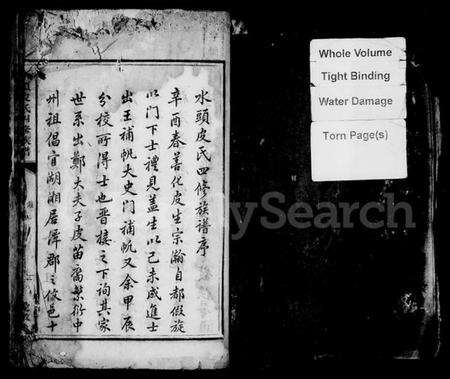 水頭皮氏四修族譜序
辛酉春善化皮生宗瀚自都假旋
以門下士禮見蓋生以己未咸進士
出王補帆大史門補帆又余甲辰
分校所得士也晉接之下詢其家
世系出鄭大夫子皮苗裔繁衍中
州祖倡宦湖湘居潭郡之攸邑十
Whole Volume
Tight Binding
Water Damage
Torn Page(s)